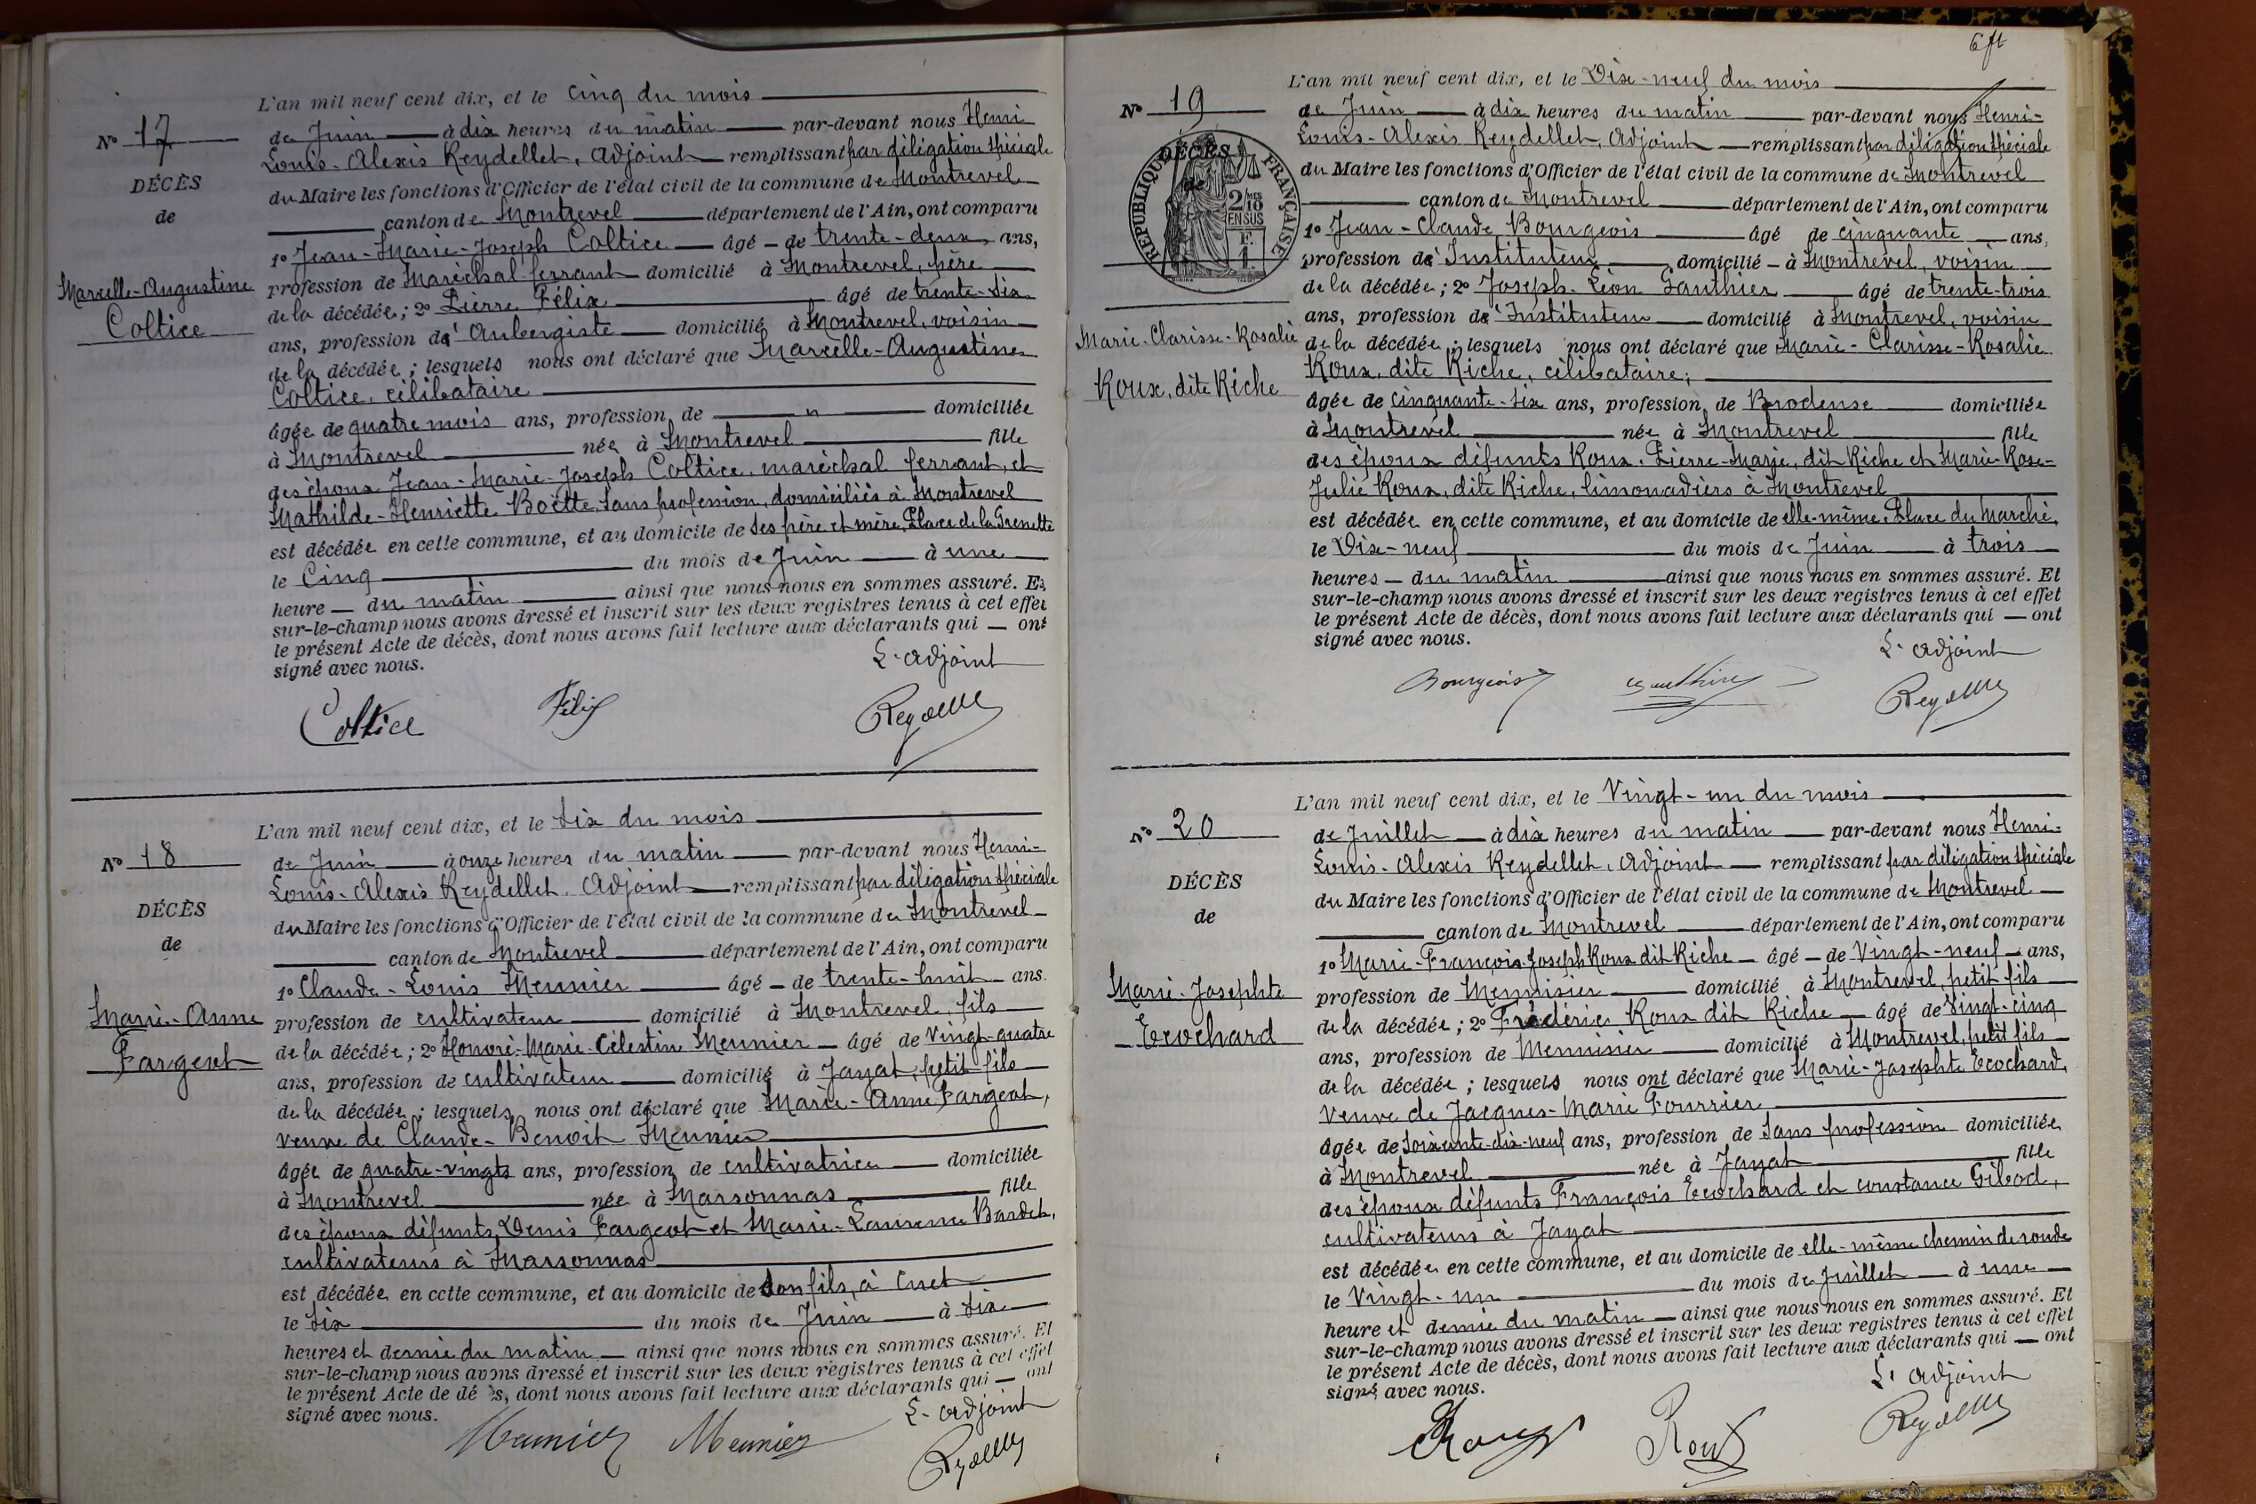 L'an mil neuf cent dix, et le cinq du mois
No 17
de Juin à dix heures du matin par-devant nous Henri
Louis-Alexis Reydellet, Adjoint remplissant par délégation spéciale
DÉCÈS
du Maire les fonctions d'Officier de l'état civil de la commune de Montrevel
de
canton de Montrevel département de l'Ain, ont comparu
1o Jean-Marie-Joseph Coltice âgé de trente-deux ans,
Marcelle-Augustine
Coltice
profession de Maréchal ferrant domicilié à Montrevel, père
de la décédée; 2o Pierre Félix âgé de trente-six
ans, profession d'Aubergiste domicilié à Montrevel, voisin
de la décédée; lesquels nous ont déclaré que Marcelle-Augustine
Coltice, célibataire
âgée de quatre mois ans, profession de " domiciliée
à Montrevel née à Montrevel fille
des époux Jean-Marie-Joseph Coltice, maréchal ferrant, et
Mathilde-Henriette Boëtte, sans profession, domiciliés à Montrevel
est décédée en cette commune, et au domicile de ses père et mère, Place de la Grenette
le Cinq du mois de Juin à une
heure du matin ainsi que nous nous en sommes assuré. Et
sur-le-champ nous avons dressé et inscrit sur les deux registres tenus à cet effet
le présent Acte de décès, dont nous avons fait lecture aux déclarants qui ont
signé avec nous.
L'adjoint
Coltice Félix Reydellet
L'an mil neuf cent dix, et le six du mois
No 18
de Juin à onze heures du matin par-devant nous Henri-
Louis-Alexis Reydellet, Adjoint remplissant par délégation spéciale
DÉCÈS
du Maire les fonctions d'Officier de l'état civil de la commune de Montrevel
de
canton de Montrevel département de l'Ain, ont comparu
1o Claude-Louis Meunier âgé de trente-huit ans.
Marie-Anne
Fargeot
profession de cultivateur domicilié à Montrevel, fils
de la décédée; 2o Honoré-Marie-Célestin Meunier âgé de Vingt-quatre
ans, profession de cultivateur domicilié à Jayat, petit-fils
de la décédée; lesquels nous ont déclaré que Marie-Anne Fargeot,
veuve de Claude-Benoit Meunier
âgée de quatre-vingts ans, profession de cultivatrice domiciliée
à Montrevel née à Marsonnas fille
des époux défunts Denis Fargeot et Marie-Laurence Bardet,
cultivateurs à Marsonnas
est décédée en cette commune, et au domicile de son fils, à Cuet
le Six du mois de Juin à six
heures et demie du matin ainsi que nous nous en sommes assuré. Et
sur-le-champ nous avons dressé et inscrit sur les deux registres tenus à cet effet
le présent Acte de décès, dont nous avons fait lecture aux déclarants qui ont
signé avec nous.
L'adjoint
Meunier Meunier Reydellet
6 ft
L'an mil neuf cent dix, et le Dix-neuf du mois
No 19
de Juin à dix heures du matin par-devant nous Henri-
Louis-Alexis Reydellet, Adjoint remplissant par délégation spéciale
DÉCÈS
de
RÉPUBLIQUE FRANÇAISE
2/10es
EN SUS
F.
1.
du Maire les fonctions d'Officier de l'état civil de la commune de Montrevel
canton de Montrevel département de l'Ain, ont comparu
1o Jean-Claude Bourgeois âgé de cinquante ans,
profession d'Instituteur domicilié à Montrevel, voisin
de la décédée; 2o Joseph-Léon Gauthier âgé de trente-trois
ans, profession d'Instituteur domicilié à Montrevel, voisin
Marie-Clarisse-Rosalie
Roux, dite Riche
de la décédée; lesquels nous ont déclaré que Marie-Clarisse-Rosalie
Roux, dite Riche, célibataire,
âgée de cinquante-six ans, profession de Brodeuse domiciliée
à Montrevel née à Montrevel fille
des époux défunts Roux, Pierre-Marie, dit Riche et Marie-Rose-
Julie Roux, dite Riche, limonadiers à Montrevel
est décédée en cette commune, et au domicile de elle-même, Place du Marché,
le Dix-neuf du mois de Juin à trois
heures du matin ainsi que nous nous en sommes assuré. Et
sur-le-champ nous avons dressé et inscrit sur les deux registres tenus à cet effet
le présent Acte de décès, dont nous avons fait lecture aux déclarants qui ont
signé avec nous.
L'adjoint
Bourgeois Gauthier Reydellet
L'an mil neuf cent dix, et le Vingt-un du mois
No 20
de Juillet à dix heures du matin par-devant nous Henri-
Louis-Alexis Reydellet, Adjoint remplissant par délégation spéciale
DÉCÈS
du Maire les fonctions d'Officier de l'état civil de la commune de Montrevel
de
canton de Montrevel département de l'Ain, ont comparu
1o Marie-François-Joseph Roux dit Riche âgé de Vingt-neuf ans,
Marie-Josephte
Ecochard
profession de Menuisier domicilié à Montrevel, petit fils
de la décédée; 2o Frédéric Roux dit Riche âgé de Vingt-cinq
ans, profession de Menuisier domicilié à Montrevel, petit fils
de la décédée; lesquels nous ont déclaré que Marie-Josephte Ecochard,
veuve de Jacques-Marie Fourrier
âgée de soixante-dix-neuf ans, profession de Sans profession domiciliée
à Montrevel née à Jayat fille
des époux défunts François Ecochard et constance Gibod,
cultivateurs à Jayat
est décédée en cette commune, et au domicile de elle-même chemin de ronde
le Vingt-un du mois de Juillet à une
heure et demie du matin ainsi que nous nous en sommes assuré. Et
sur-le-champ nous avons dressé et inscrit sur les deux registres tenus à cet effet
le présent Acte de décès, dont nous avons fait lecture aux déclarants qui ont
signé avec nous.
L'adjoint
Roux Roux Reydellet